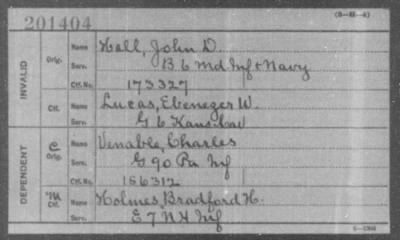 201404
(3—111—4)
INVALID
Orig. Name Hall, John D.
Serv. B 6 Md. Inf & Navy
Ctf. No. 173327
Ctf. Name Lucas, Ebenezer W.
Serv. G 6 Kans. Cav
DEPENDENT
C Orig. Name Venable, Charles
Serv. G 90 Pa Inf
Ctf. No. 156312
M Ctf. Name Holmes, Bradford H.
Serv. E 7 N H Inf